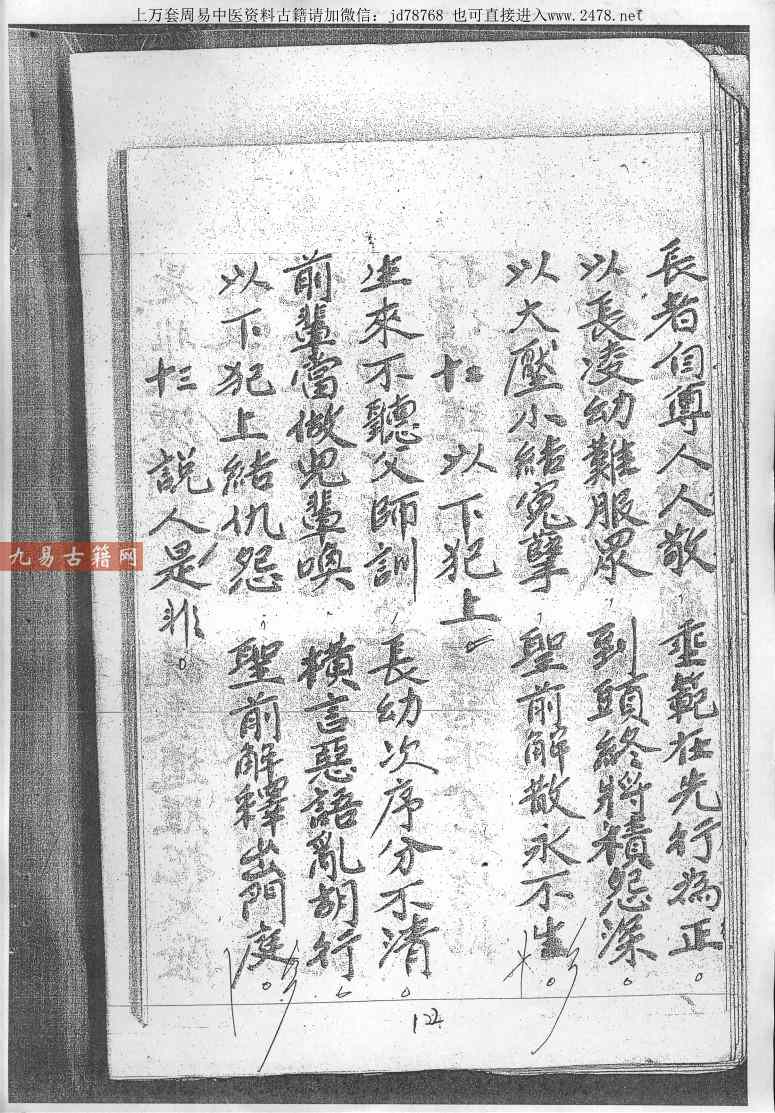 上万套周易中医资料古籍请加微信：jd78768 也可直接进入www.2478.net
長者自尊人人敬，垂範在先行為正。
以長凌幼難服眾，到頭終將積怨深。
以大壓小結冤孽，聖前解散永不生。
十二 以下犯上。
生來不聽父師訓，長幼次序分不清。
前輩當做兒輩喚，橫言惡語亂胡行。
以下犯上結仇怨，聖前解釋出門庭。
十三 説人是非。
九易古籍网